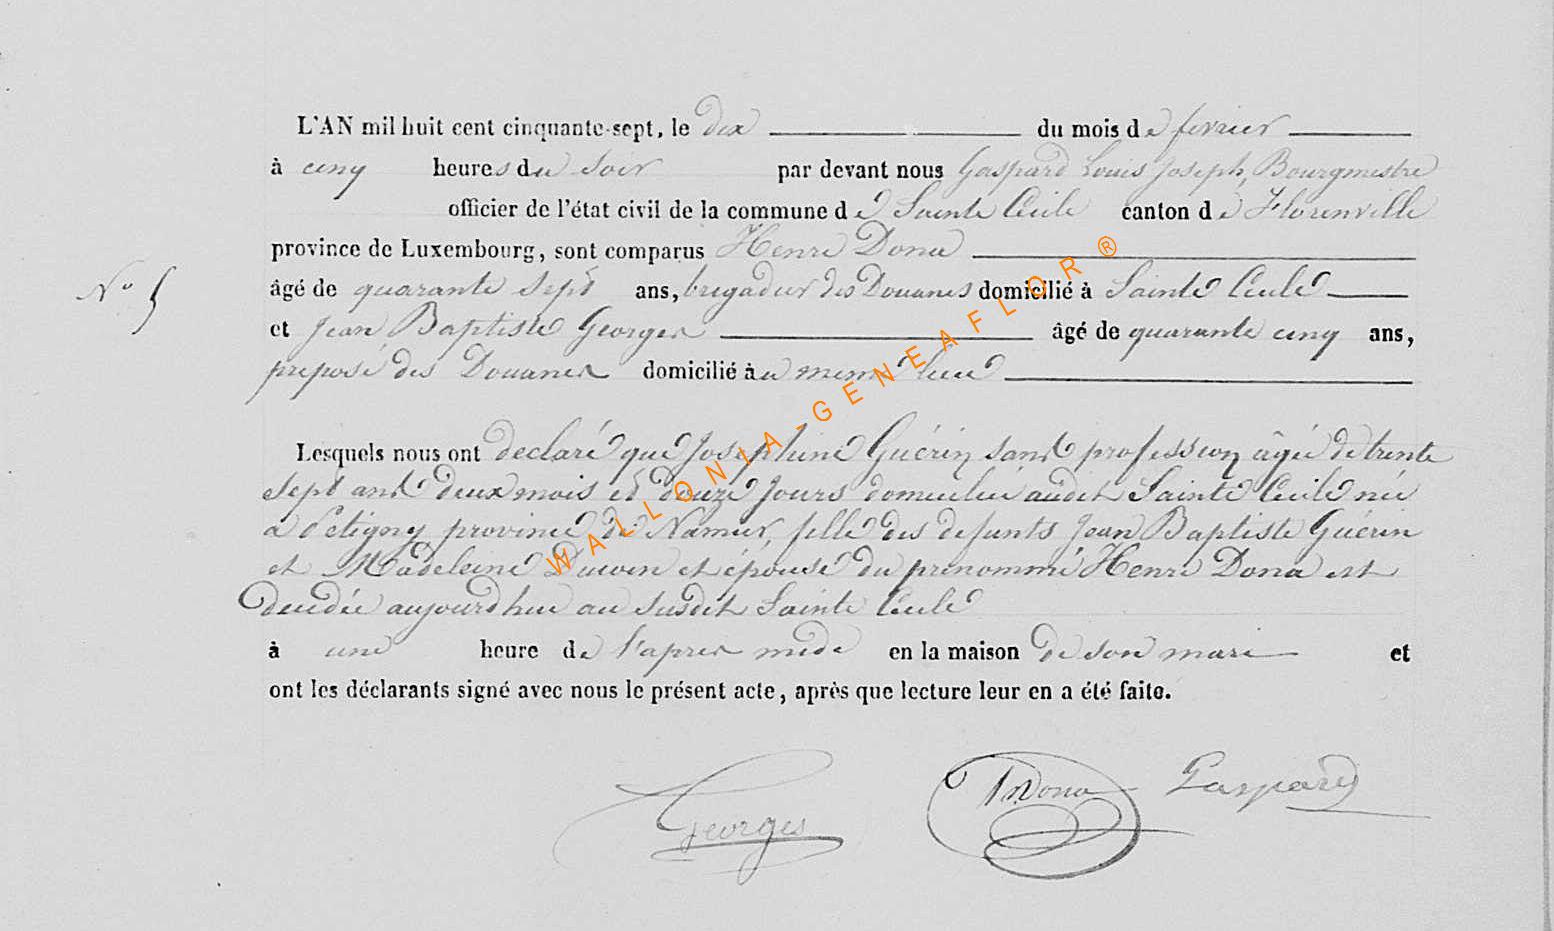 L'AN mil huit cent cinquante-sept, le dix du mois de fevrier
à cinq heures du soir par devant nous Gaspard Louis Joseph, Bourgmestre
officier de l'état civil de la commune de Sainte Cécile canton de Florenville
province de Luxembourg, sont comparus Henri Dona
N° 5
âgé de quarante sept ans, brigadier des Douanes domicilié à Sainte Cecile
et Jean Baptiste Georges âgé de quarante cinq ans,
préposé des Douanes domicilié au meme lieu
Lesquels nous ont declaré que Josephine Guérin sans profession âgée de trente
sept ans deux mois et douze jours domiciliée audit Sainte Cecile née
a Petigny province de Namur, fille des defunts Jean Baptiste Guérin
et Madeleine et épouse du prénommé Henri Dona est
decedée aujourd'hui au susdit Sainte Cecile
à une heure de l'apres midi en la maison de son mari et
ont les déclarants signé avec nous le présent acte, après que lecture leur en a été faite.
Georges Dona Gaspard
WALLONIA-GENEAFLOR ®